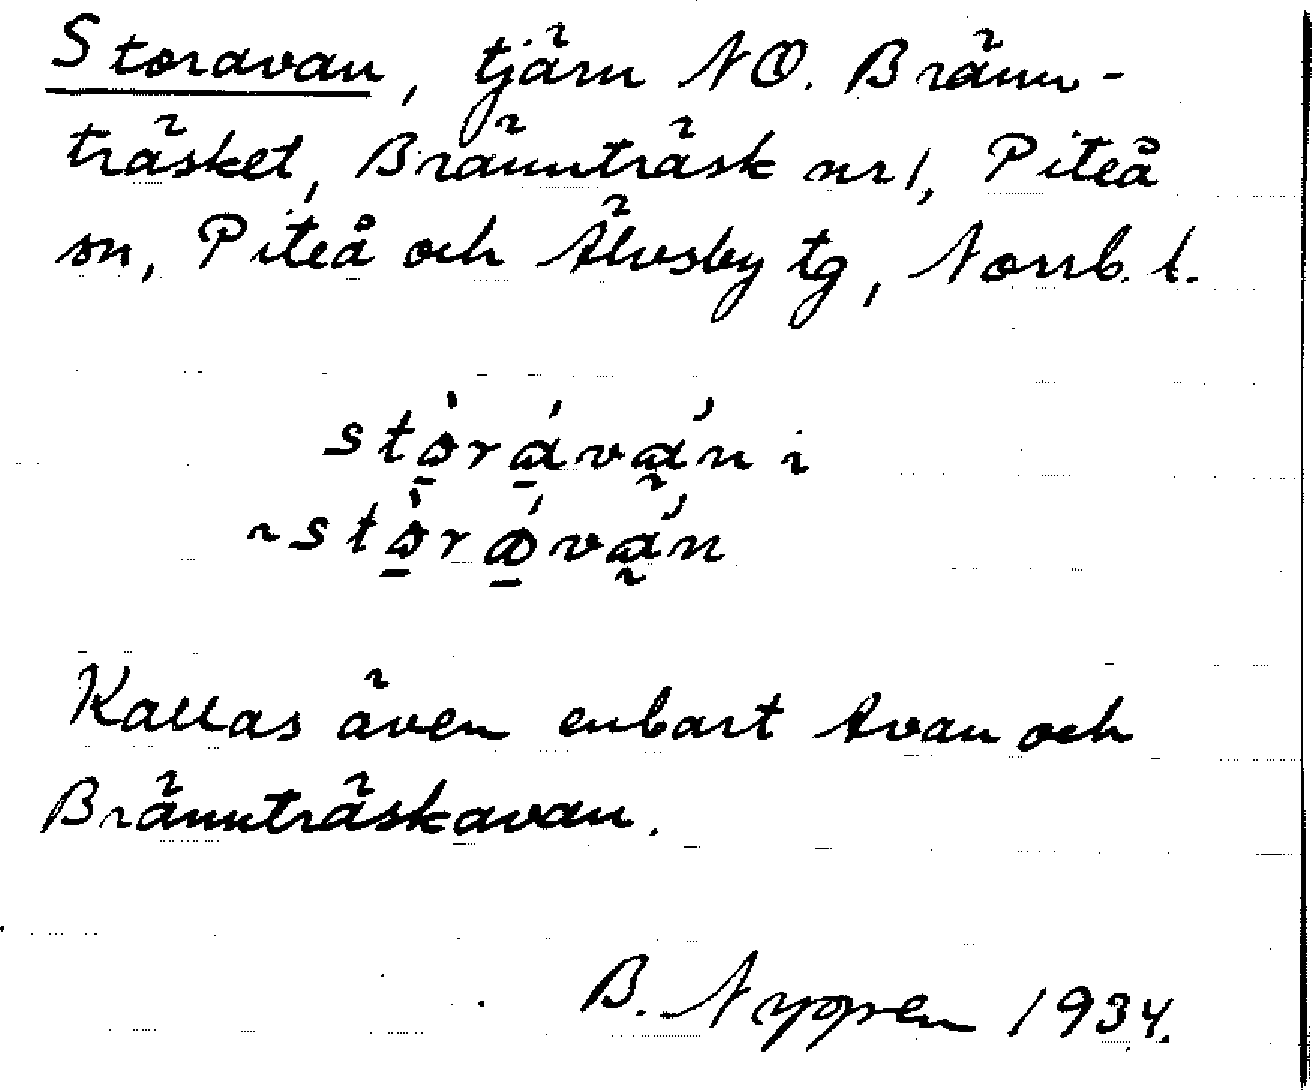 Storavan, tjärn NO. Bränn-
träsket, Brännträsk nr 1, Piteå
sn, Piteå och Älvsby tg, Norrb. l.
stò̱rá̱vá̰n i
~stò̱rǻ̱vá̰n
Kallas även enbart Avan och
Brännträskavan.
B. Nyppen 1934.